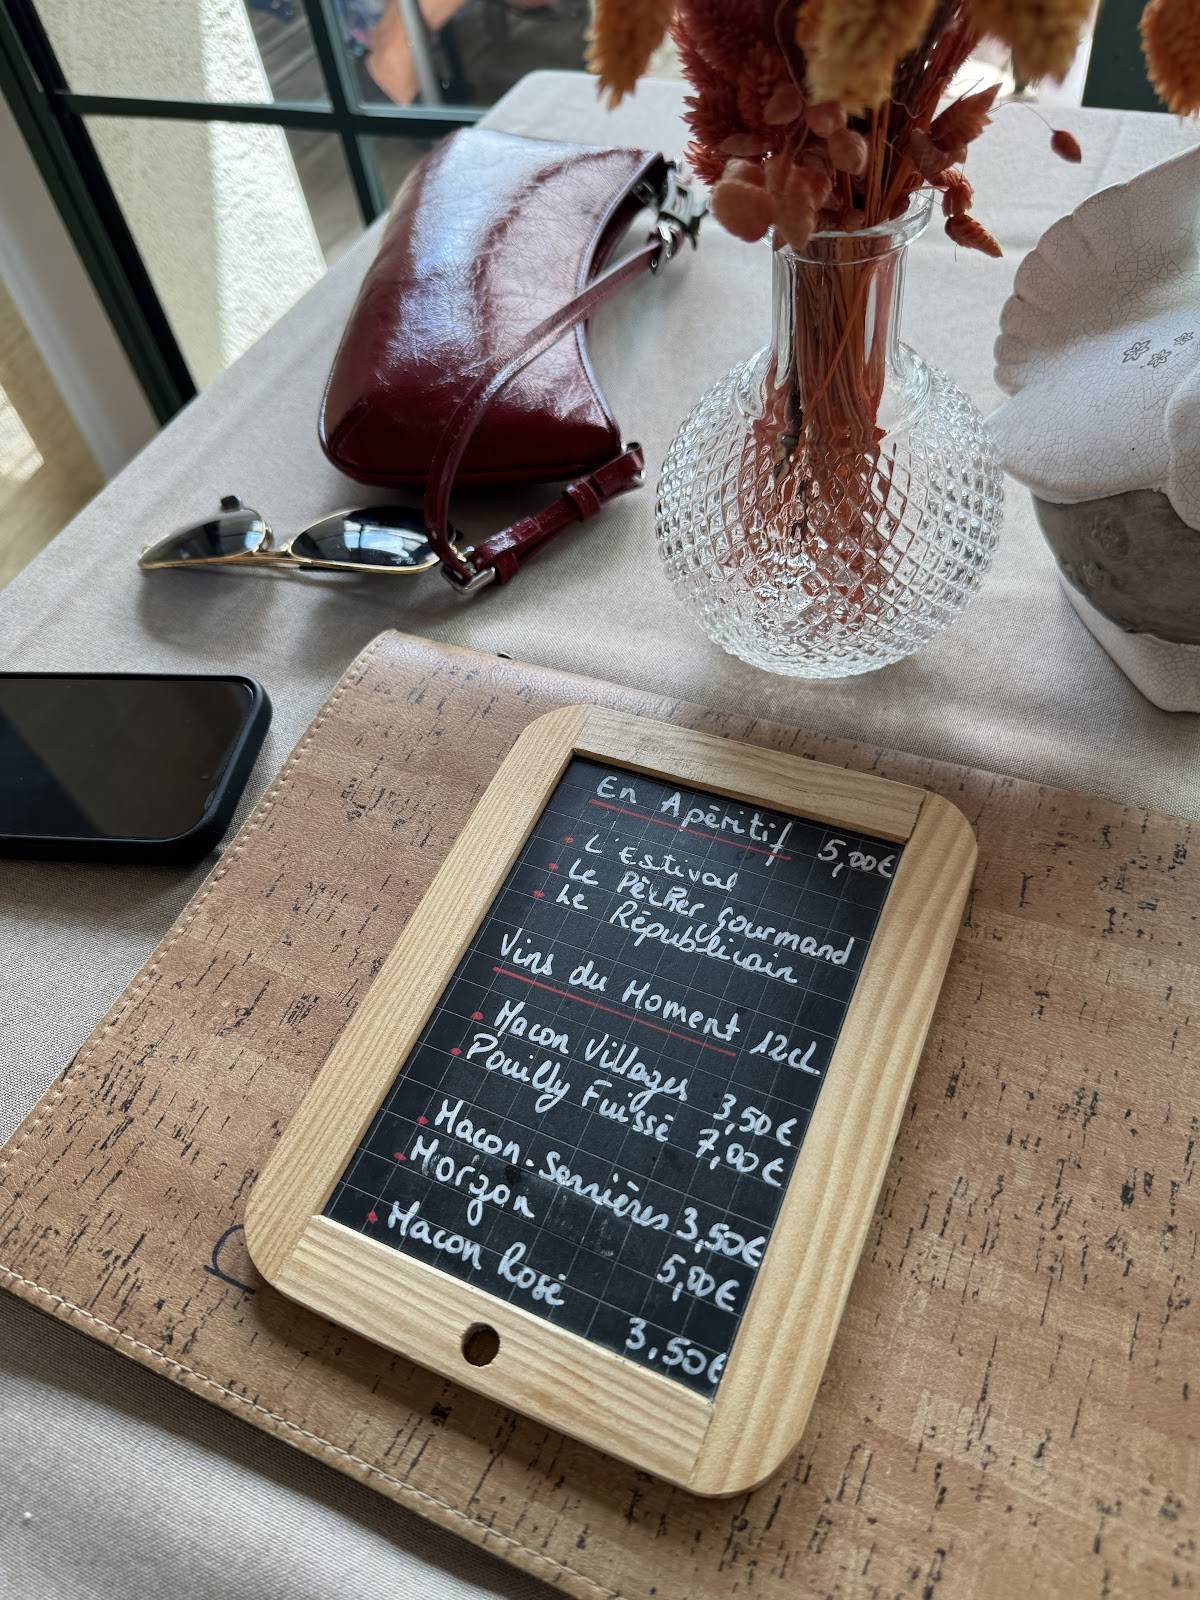 En Apéritif 5,00€
• L'Estival
• Le Pêcher Gourmand
• Le Républicain
Vins du Moment 12cl.
• Macon Villages 3,50€
• Pouilly Fuissé 7,00€
• Macon-Serrières 3,50€
• Morgon 5,00€
• Macon Rosé 3,50€